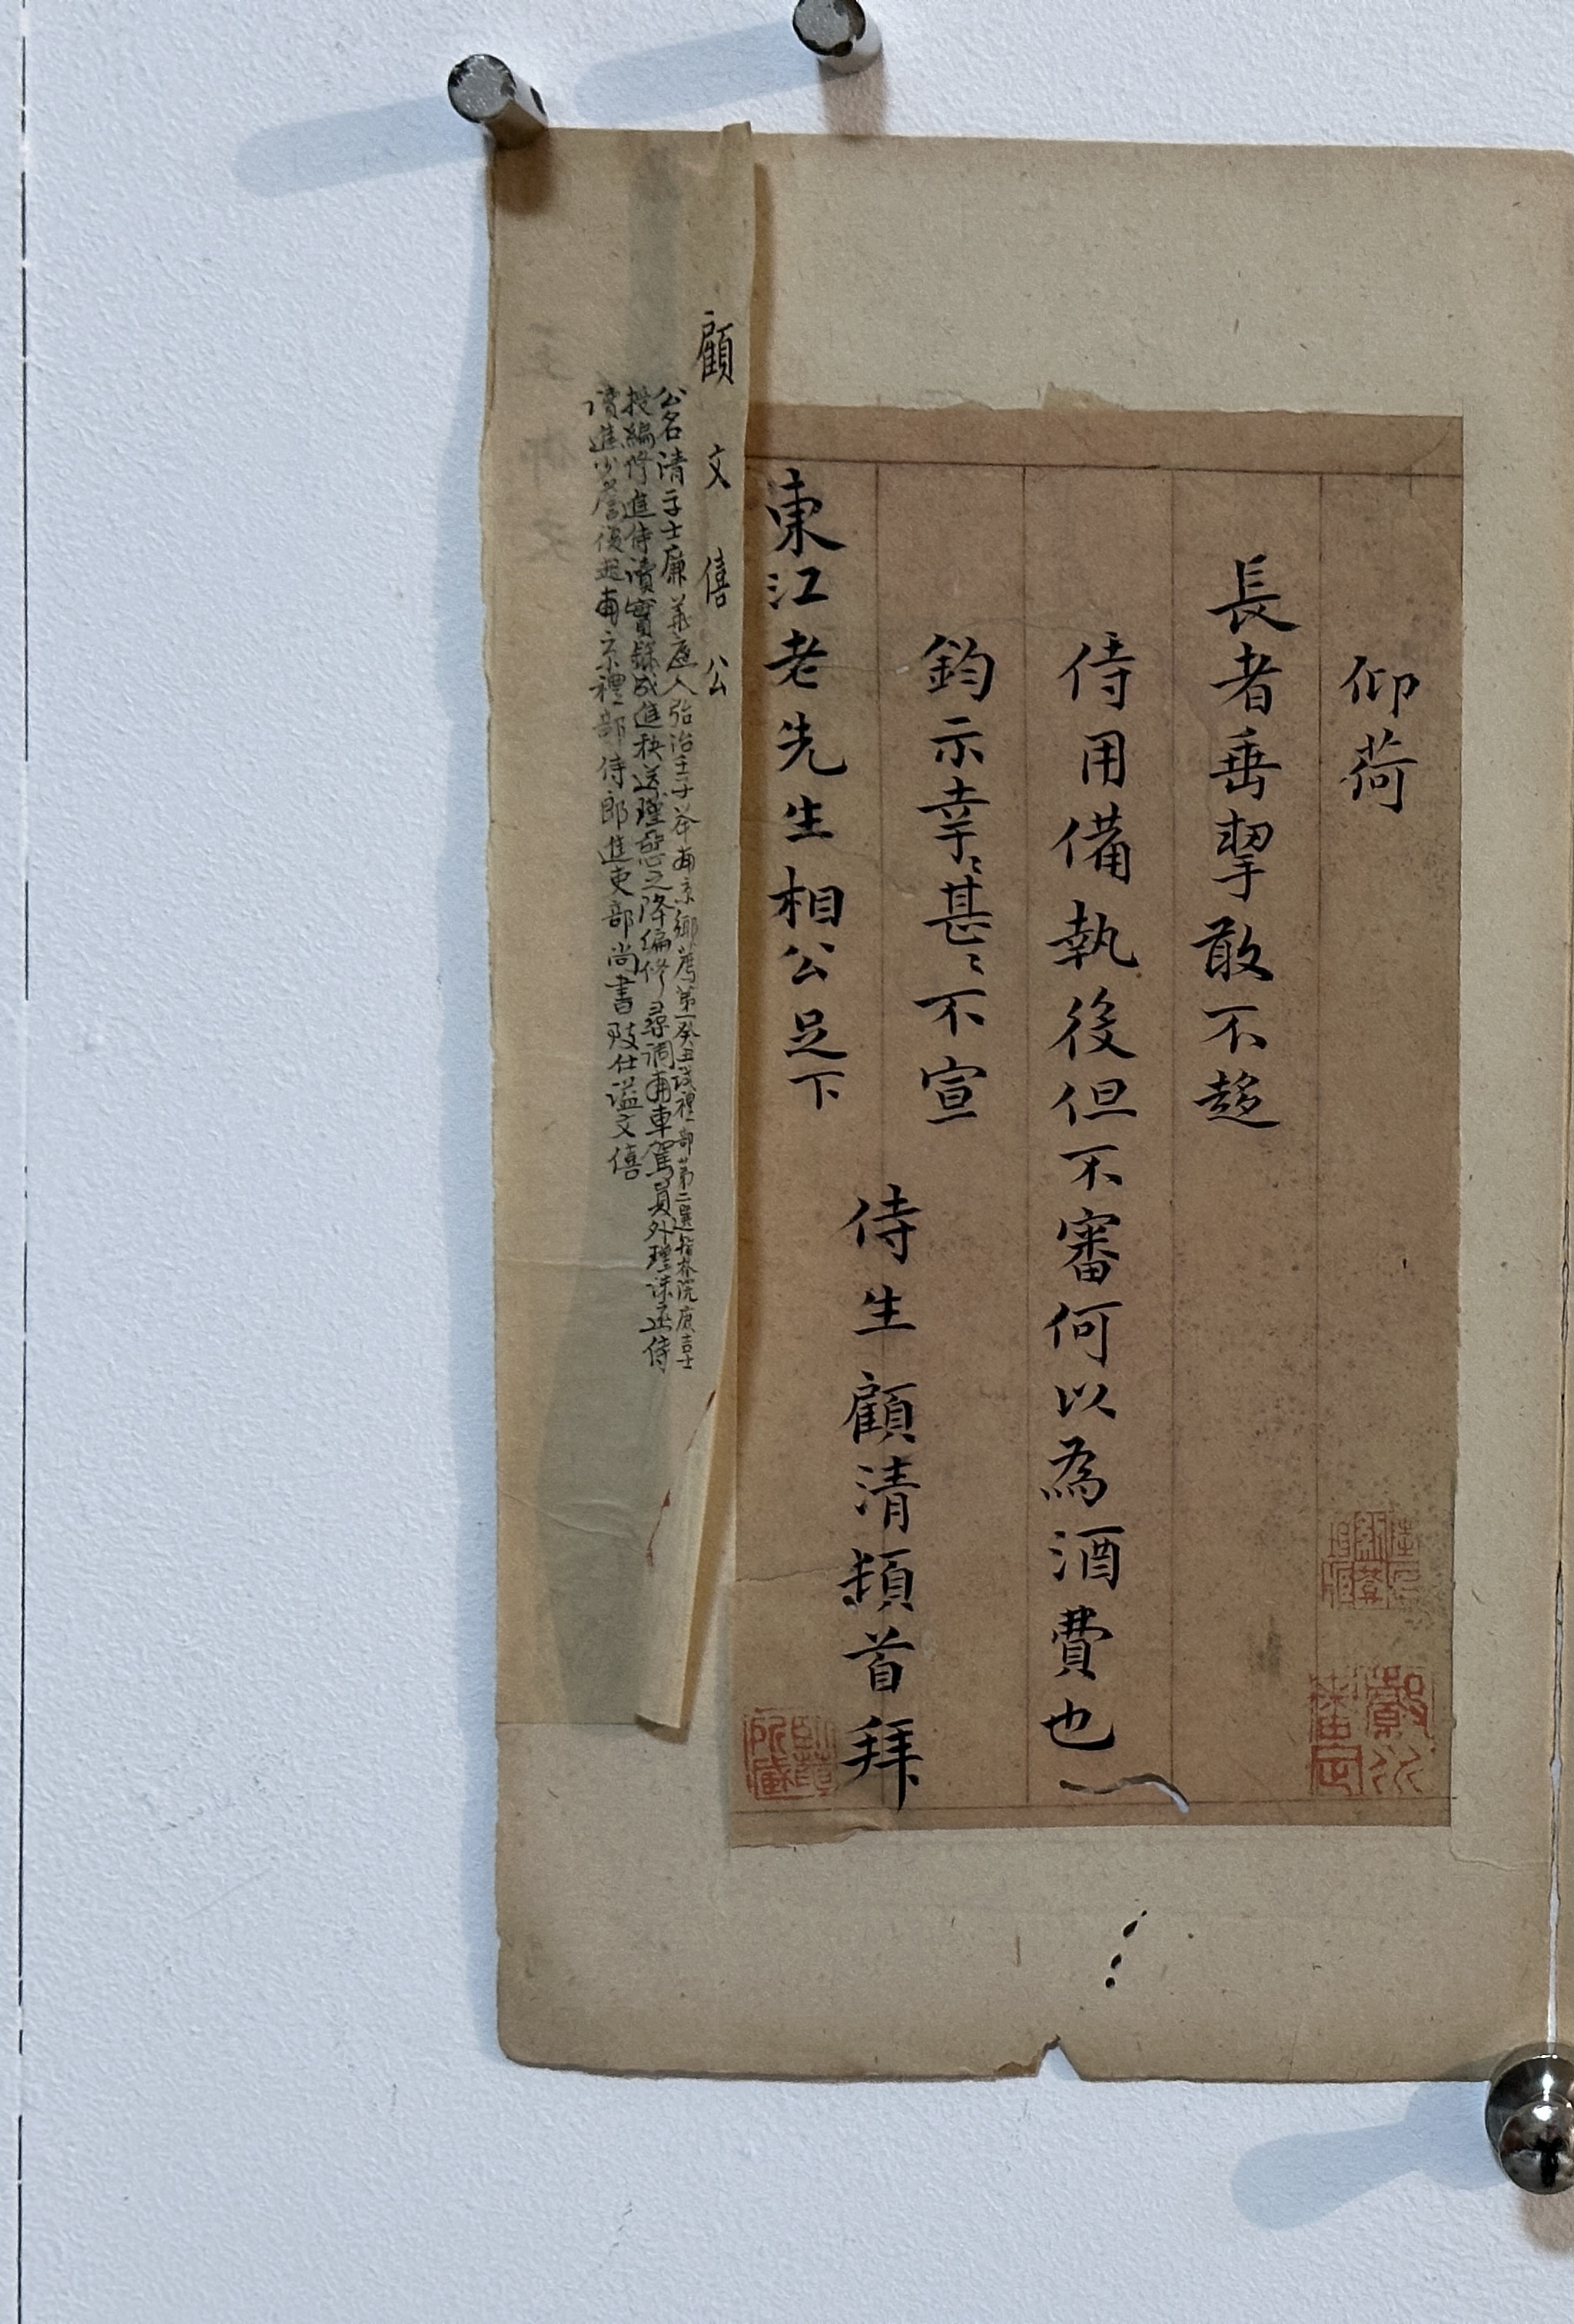 仰荷
長者垂挈敢不趍
侍用備執後但不審何以為酒費也
鈞示幸〻甚〻不宣
侍生顧清頓首拜
東江老先生相公足下
顧文僖公
公名清子士廉華亭人弘治壬子举南京鄉薦第一癸丑試禮部第二選翰林院庶吉士
授編修進侍讀實錄成進秩逆瑾惡之降編修尋調南車駕員外瑾誅還侍
讀進少詹後起南京禮部侍郎進吏部尚書致仕諡文僖